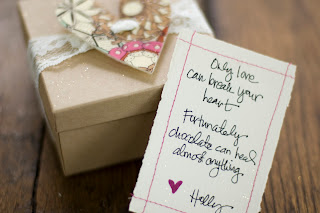 Only love
can break your
heart.
Fortunately
chocolate can heal
almost anything.
Holly